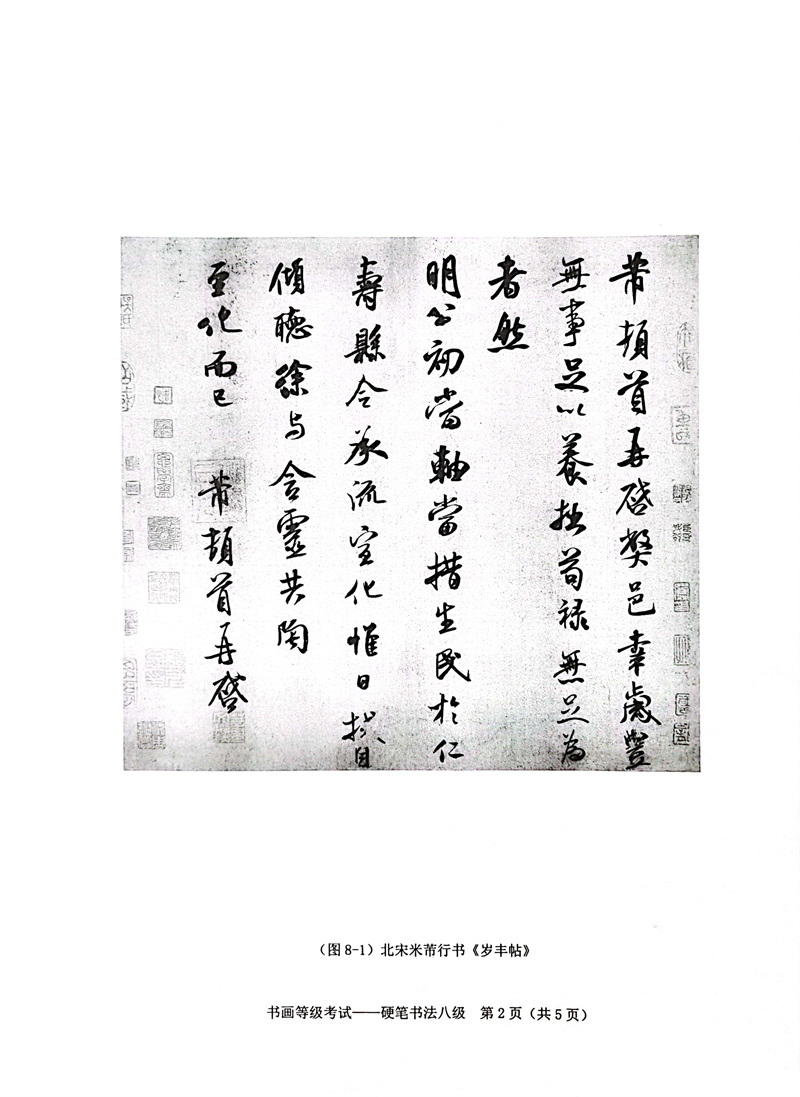 芾頓首再啓弊邑幸歲豐
無事足以養拙苟祿無足為
者然
明公初當軸當措生民於仁
壽縣令承流宣化惟日拭目
傾聽徐與含靈共陶
至化而已 芾頓首再啓
（图8-1）北宋米芾行书《岁丰帖》
书画等级考试——硬笔书法八级 第2页（共5页）